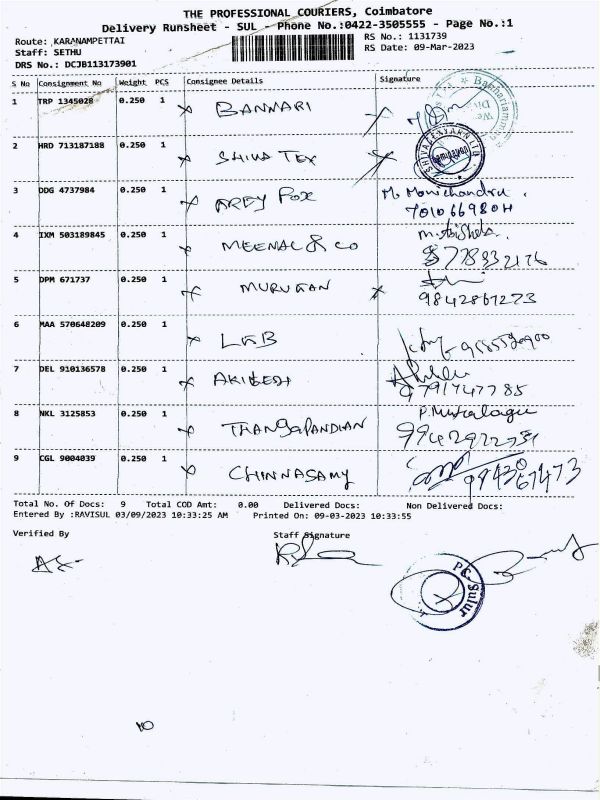 THE PROFESSIONAL COURIERS, Coimbatore
Delivery Runsheet - SUL - Phone No.:0422-3505555 - Page No.:1
Route: KARANAMPETTAI RS No.: 1131739
Staff: SETHU RS Date: 09-Mar-2023
DRS No.: DCJB113173901
S No Consignment No Weight PCS Consignee Details Signature
1 TRP 1345028 0.250 1 BANNARI
2 HRD 713187188 0.250 1 SHIVA TEX
3 DDG 4737984 0.250 1 AREY FOX
7010669804
4 IXM 503189845 0.250 1 MEENAL & CO
8778332176
5 DPM 671737 0.250 1 MURUGAN
9842867273
6 MAA 570648209 0.250 1 LKB
7 DEL 910136578 0.250 1 AKILESH
8 NKL 3125853 0.250 1 THANGAPANDIAN
9 CGL 9004039 0.250 1 CHINNASAMY
Total No. Of Docs: 9 Total COD Amt: 0.00 Delivered Docs: Non Delivered Docs:
Entered By :RAVISUL 03/09/2023 10:33:25 AM Printed On: 09-03-2023 10:33:55
Verified By Staff Signature